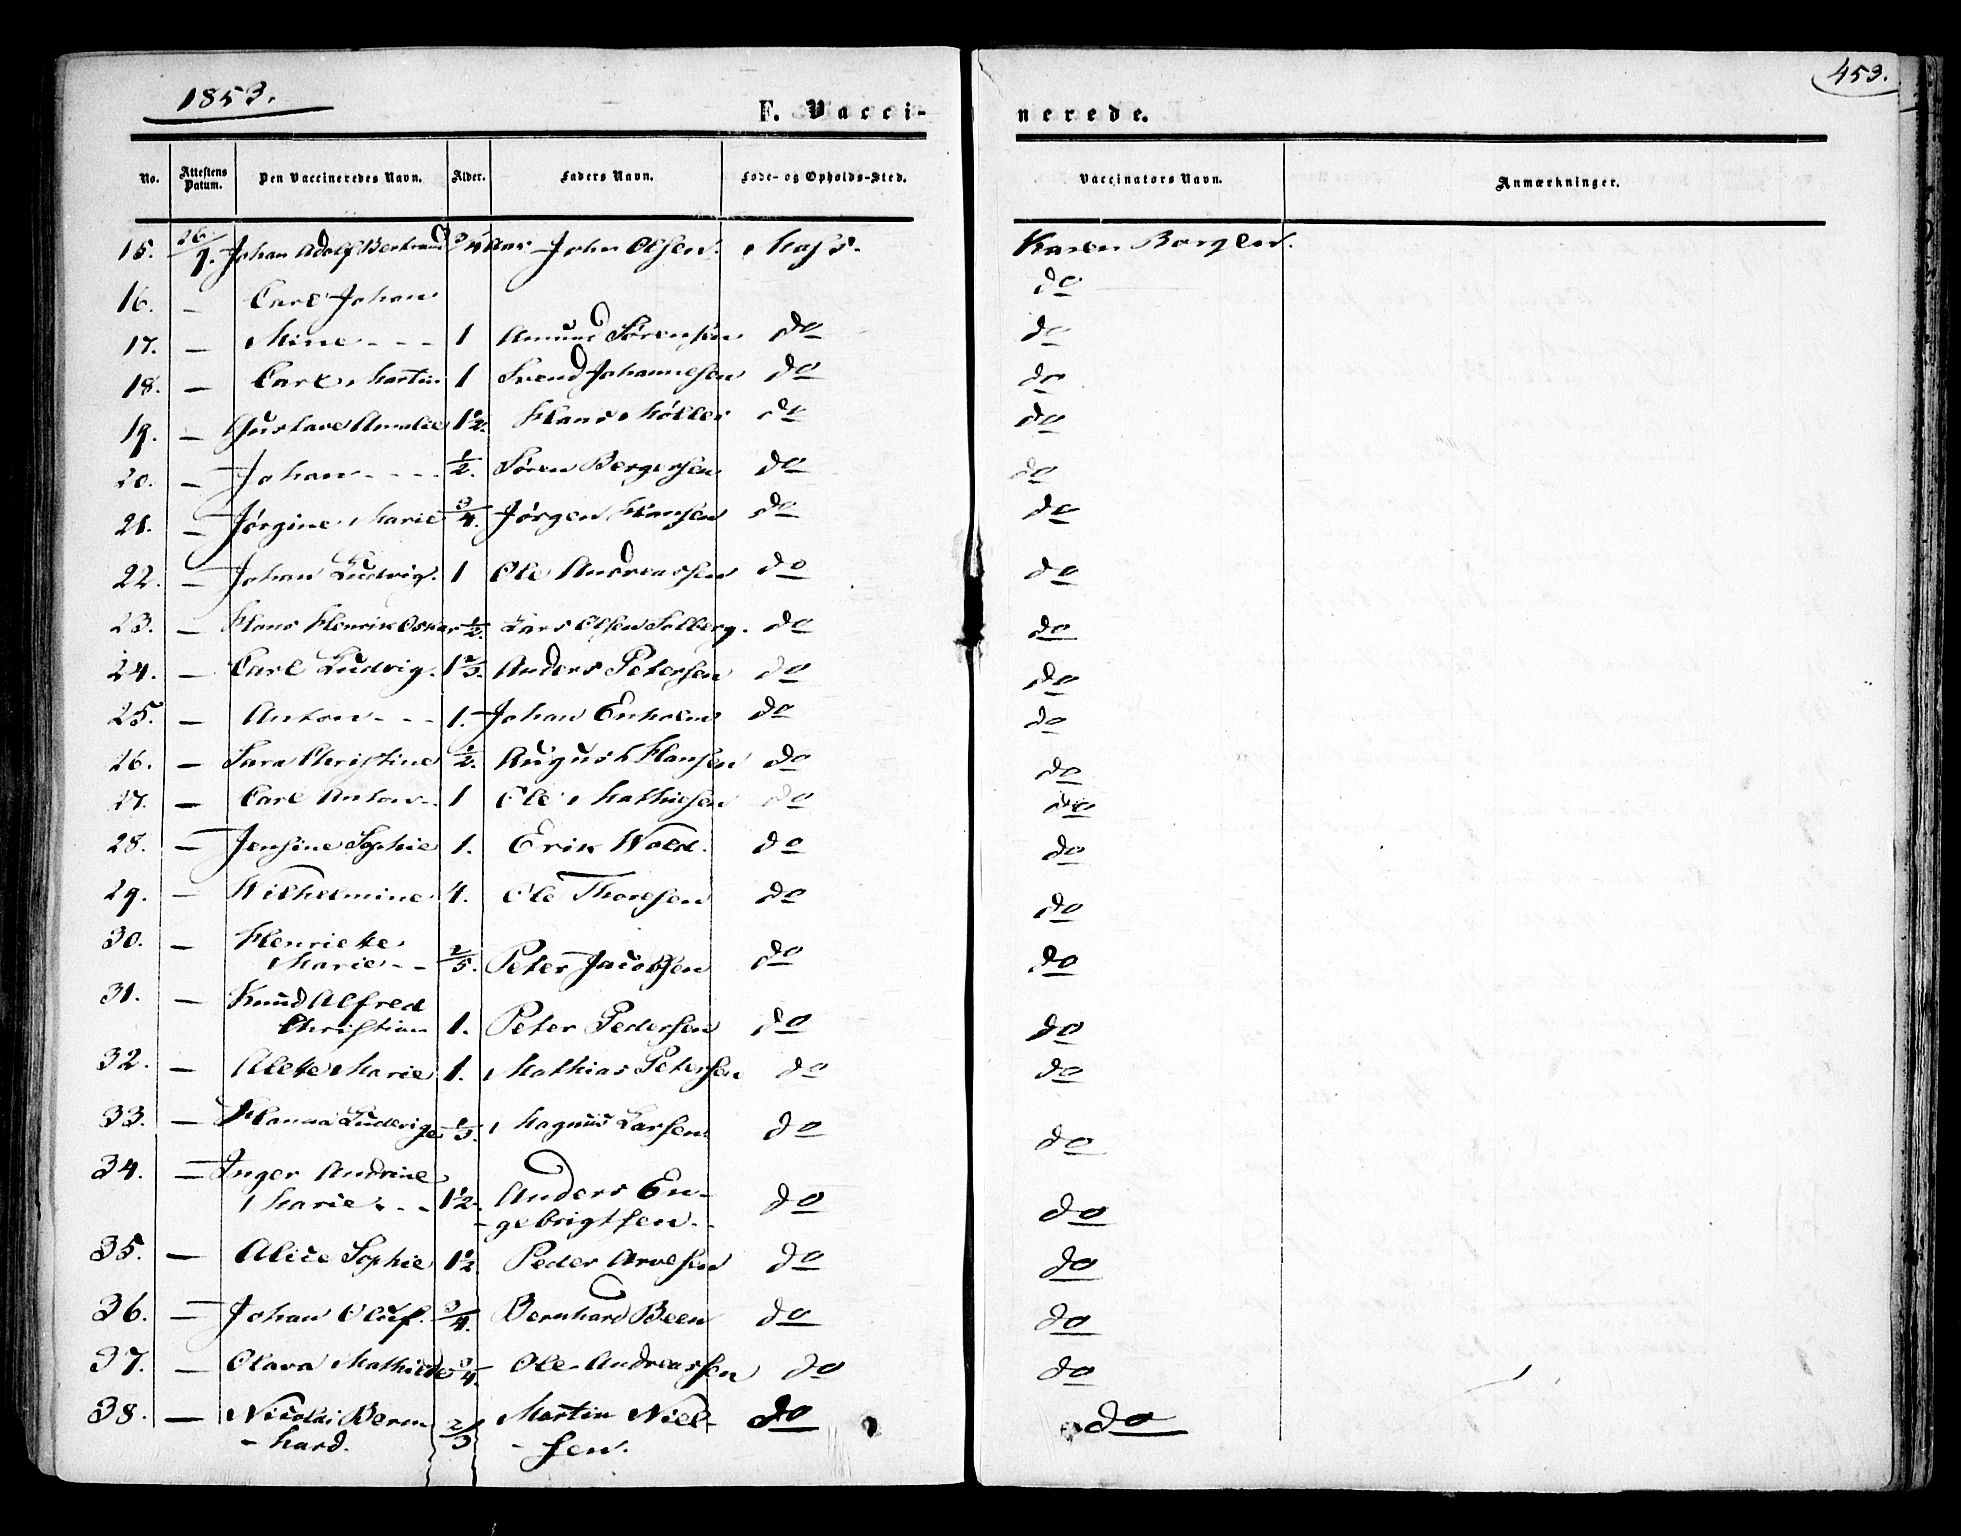 1853.
453.
F. Vacci-
nerede.
No. Attestens Datum. Den Vaccineredes Navn. Alder. Faders Navn. Føde- og Opholds-Sted. Vaccinators Navn. Anmærkninger.
15. 26/9. Johan Adolf Bertrand 3/4 Aar John Olsen. Moss. Karen Borgen.
16. — Carl Johan do
17. — Mine - - - 1 Amund Sørensen do do
18. — Carl Martin 1 Svend Johannesen do do
19. — Gustave Amalie 1 1/2. Hans Møller do do
20. — Johan - - - - 1/2. Søren Bergersen do do
21. — Jørgine Marie 3/4. Jørgen Hansen do do
22. — Johan Ludvig. 1 Ole Andreassen do do
23. — Hans Henrik Oskar 1/2. Lars Olsen Solberg. do do
24. — Carl Ludvig. 1 2/3. Anders Petersen do do
25. — Anton - - - 1. Johan Enholm do do
26. — Sara Christine 1/2. August Hansen do do
27. — Carl Anton - 1 Ole Mathiesen do do
28. — Jensine Sophie 1. Erik Wold. do do
29. — Wilhelmine 4. Ole Thoresen do do
30. — Henriette
Marie - - 2/5. Peter Jacobsen do do
31. — Knud Alfred
Christian 1. Peter Pedersen do do
32. — Alette Marie 1. Mathias Petersen do do
33. — Hanna Ludvige 1/3. Magnus Larsen do do
34. — Inger Andrine
Marie - - 1 1/2. Anders En-
- gebrigtsen - - do do
35. — Alice Sophie 1 1/2. Peder Arvesen do do
36. — Johan Oluf. 3/4. Bernhard Been do do
37. — Olava Mathilde 3/4. Ole Andreassen do do
38. — Nicolai Bern-
- hard. 2/3 Martin Niel-
- sen. do do